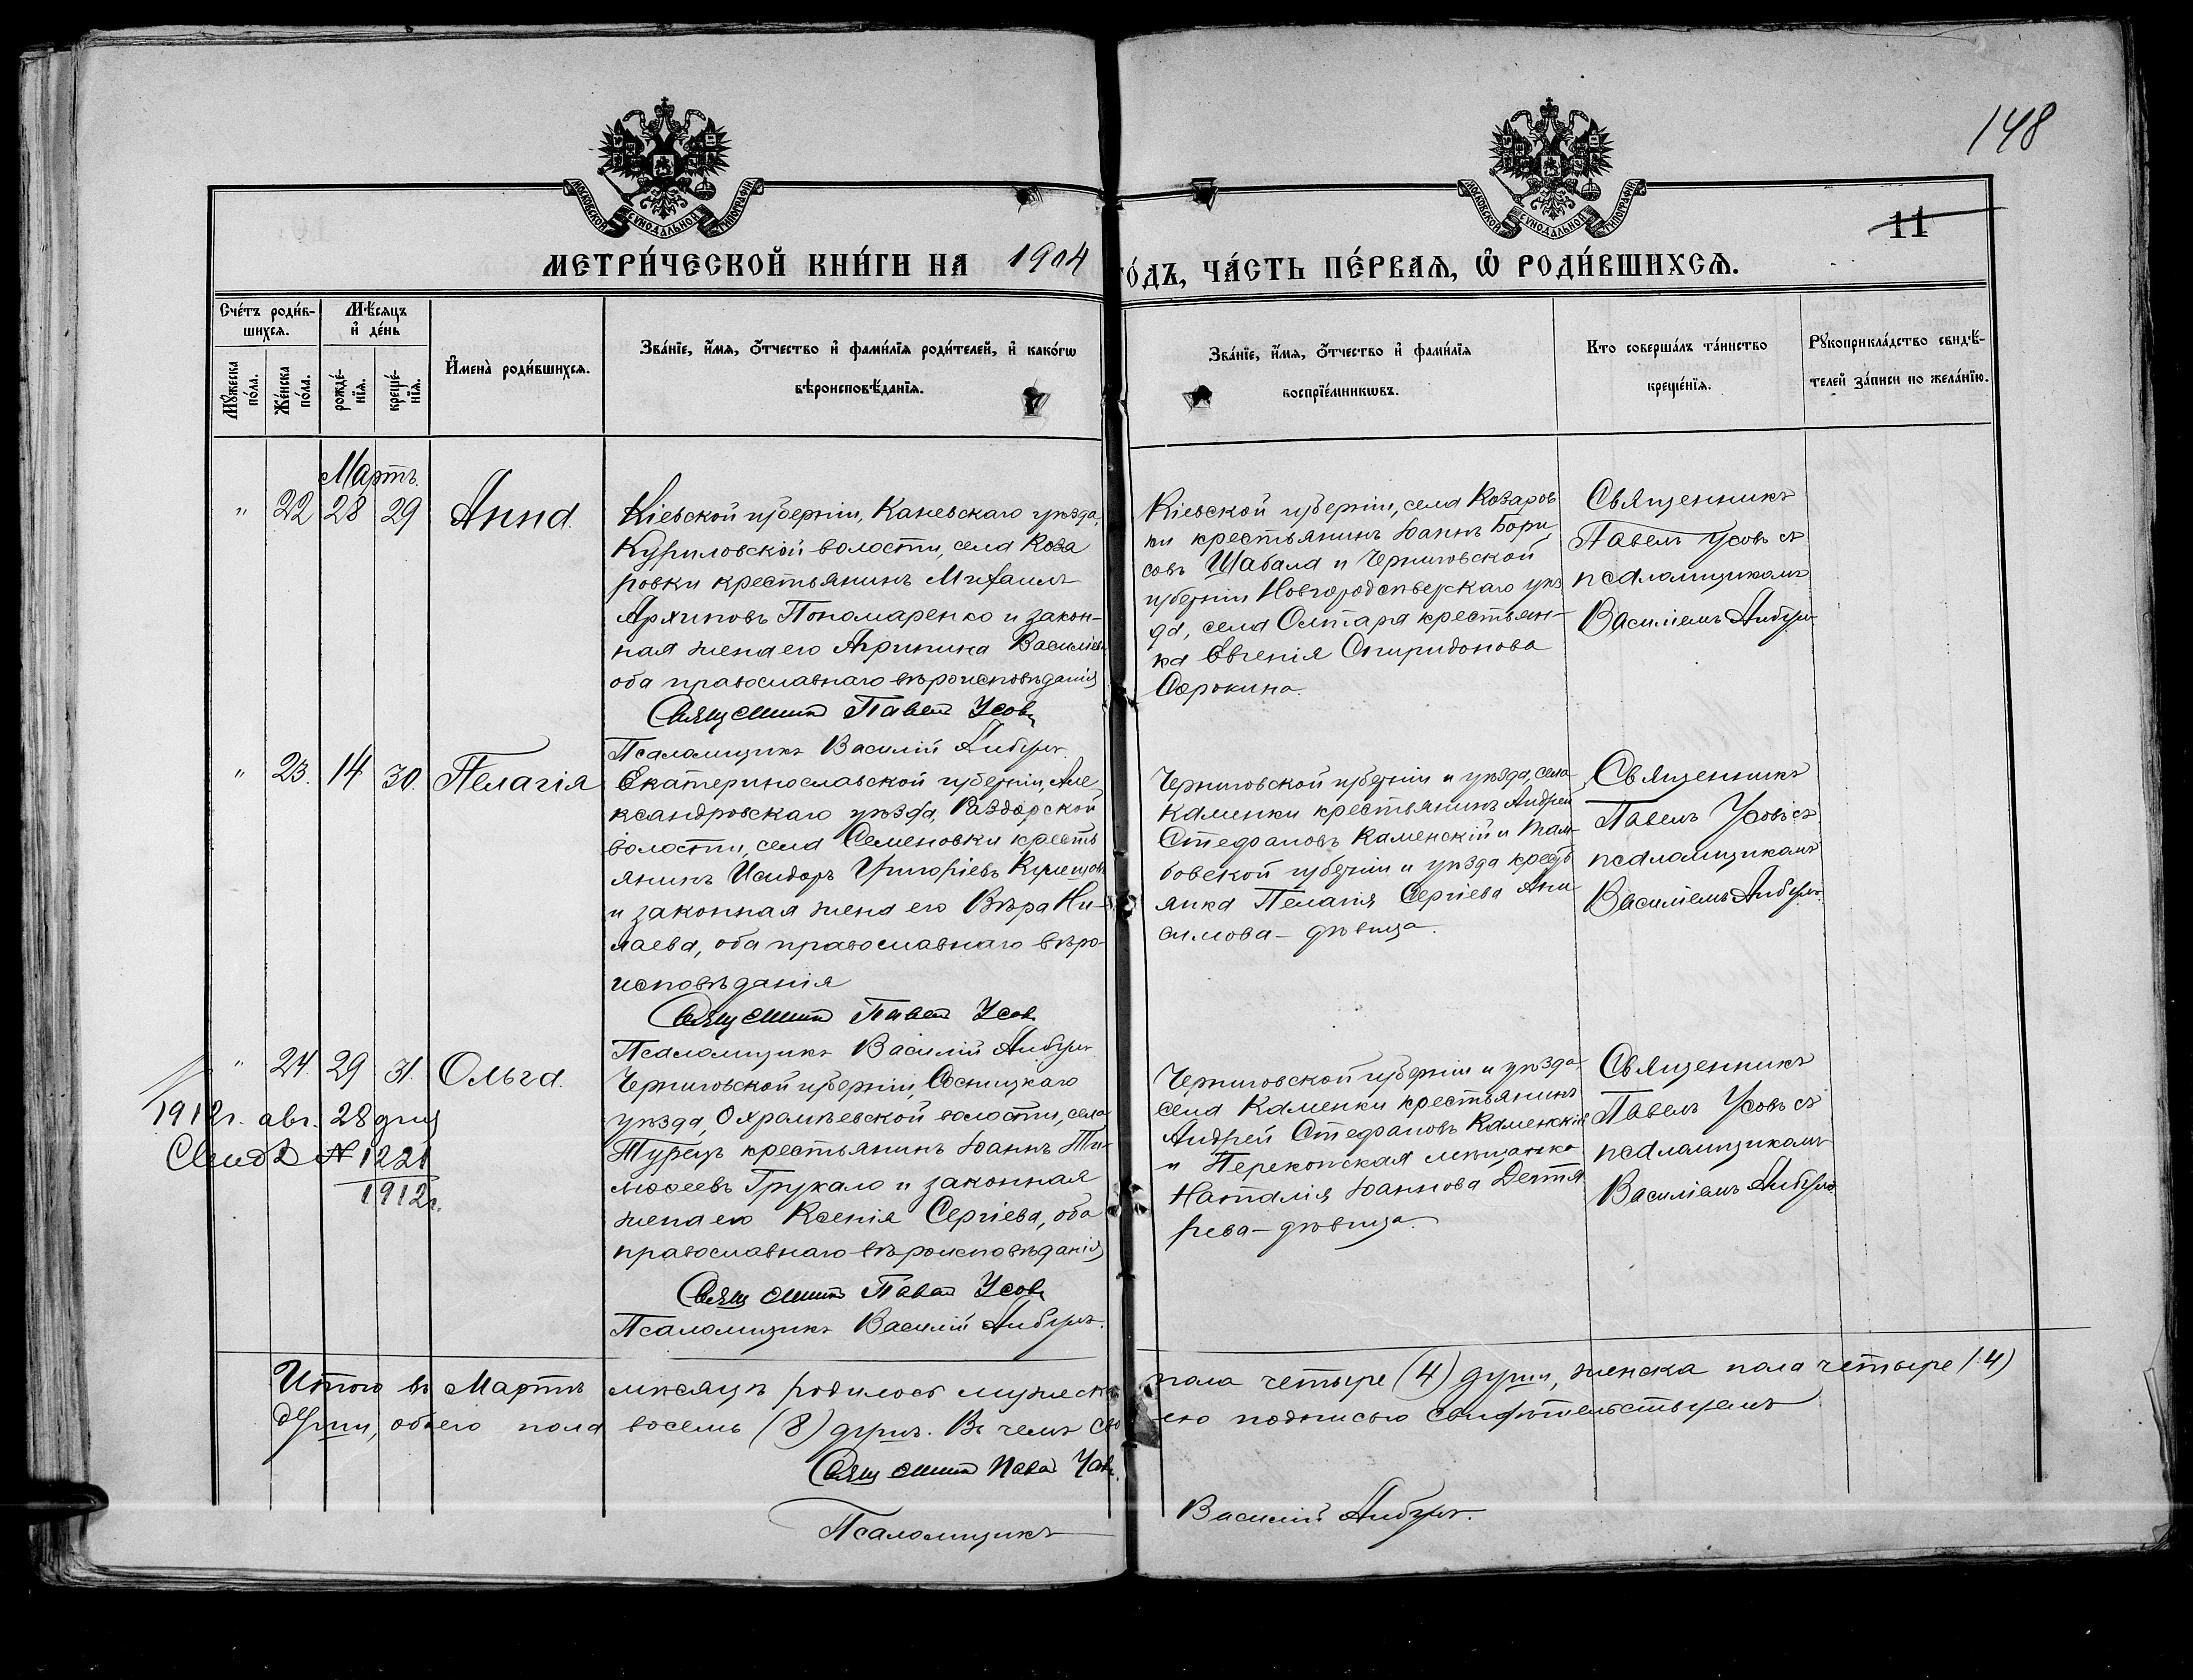 148
11
МОСКОВСКОЙ СѴНОДАЛЬНОЙ ТИПОГРАФІИ
МОСКОВСКОЙ СѴНОДАЛЬНОЙ ТИПОГРАФІИ
МЕТРИ́ЧЕСКОЙ КНИ́ГИ НА 1904 ГО́ДЪ, ЧА́СТЬ ПЕ́РВАЯ, Ѡ҆ РОДИ́ВШИХСЯ.
Сче́тъ роди́в-
шихся.
Мѣ́сяцъ
и҆ де́нь
Мꙋ́жеска
по́ла.
Же́нска
по́ла.
рожде́-
нїя.
креще́-
нїя.
И҆мена̀ роди́вшихся.
Зва́нїе, и҆́мя, ѻ҆́тчество и҆ фами́лїя роди́телей, и҆ како́гѡ
вѣроисповѣ́данїя.
Зва́нїе, и҆́мя, ѻ҆́тчество и҆ фами́лїя
воспрїе́мникѡвъ.
Кто соверша́лъ та́инство
креще́нїя.
Рꙋкоприкла́дство свидѣ́-
телей за́писи по жела́нїю.
Мартъ.
" 22 28 29 Анна.
Кіевской губерніи, Каневскаго уѣзда,
Куриловской волости, села Коза
ровки крестьянинъ Михаилъ
Архиповъ Пономаренко и закон-
ная жена его Агрипина Василіев
оба православнаго вѣроисповѣданія
Священникъ Павелъ Усовъ
Псаломщикъ Василій
Кіевской губерніи, села Козаров
ки крестьянинъ Іоаннъ Бори
совъ Шабала и Черниговской
губерніи Новгородсѣверскаго уѣз
да, села крестьян-
ка Евгенія Спиридонова
Сорокина.
Священникъ
Павелъ Усовъ съ
псаломщикомъ
Василіемъ
" 23. 14 30. Пелагія
Екатеринославской губерніи, Але
ксандровскаго уѣзда, Раздорской
волости, села Семеновки кресть
янинъ Исидоръ Григоріевъ
и законная жена его Вѣра Ни-
лаева, оба православнаго вѣро-
исповѣданія
Священникъ Павелъ Усов
Псаломщикъ Василій
Черниговской губерніи и уѣзда, села
Каменки крестьянинъ Андрей
Стефановъ Каменскій и Там-
бовской губерніи и уѣзда кресть
янка Пелагія Сергіева Ани
симова – дѣвица.
Священникъ
Павелъ Усовъ съ
псаломщикомъ
Василіемъ
" 24. 29 31. Ольга.
1912г. авг. 28 дня
Свид. № 1221
1912г.
Черниговской губерніи, Сосницкаго
уѣзда, Охрамѣевской волости, села
Турецъ крестьянинъ Іоаннъ Ти-
моѳеевъ Грукало и законная
жена его Ксенія Сергіева, оба
православнаго вѣроисповѣданія
Священникъ Павелъ Усовъ
Псаломщикъ Василій
Черниговской губерніи и уѣзда
села Каменки крестьянинъ
Андрей Стефановъ Каменскій
и Перекопская мѣщанка
Наталія Іоаннова Дегтя
рева – дѣвица.
Священникъ
Павелъ Усовъ съ
псаломщикомъ
Василіемъ
Итого въ Мартѣ мѣсяцѣ родилось мужеска пола четыре (4) души, женска пола четыре (4)
души, обоего пола восемь (8) душъ. Въ чемъ сво ею подписью свидѣтельствуемъ
Священникъ Павел Усовъ.
Псаломщикъ Василій